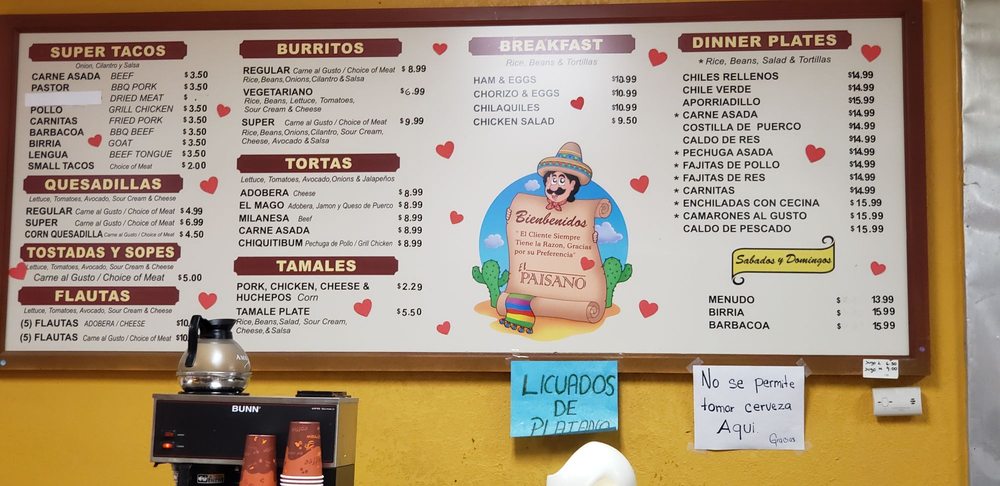 SUPER TACOS
Onion, Cilantro y Salsa
CARNE ASADA BEEF $3.50
PASTOR BBQ PORK $3.50
DRIED MEAT $ .
POLLO GRILL CHICKEN $3.50
CARNITAS FRIED PORK $3.50
BARBACOA BBQ BEEF $3.50
BIRRIA GOAT $3.50
LENGUA BEEF TONGUE $3.50
SMALL TACOS Choice of Meat $2.00
QUESADILLAS
Lettuce, Tomatoes, Avocado, Sour Cream & Cheese
REGULAR Carne al Gusto / Choice of Meat $4.99
SUPER Carne al Gusto / Choice of Meat $6.99
CORN QUESADILLA Carne al Gusto / Choice of Meat $4.50
TOSTADAS Y SOPES
Lettuce, Tomatoes, Avocado, Sour Cream & Cheese
Carne al Gusto / Choice of Meat $5.00
FLAUTAS
Lettuce, Tomatoes, Avocado, Sour Cream & Cheese
(5) FLAUTAS ADOBERA / CHEESE $10
(5) FLAUTAS Carne al Gusto / Choice of Meat $10
BURRITOS
REGULAR Carne al Gusto / Choice of Meat $8.99
Rice, Beans, Onions, Cilantro & Salsa
VEGETARIANO $6.99
Rice, Beans, Lettuce, Tomatoes,
Sour Cream & Cheese
SUPER Carne al Gusto / Choice of Meat $9.99
Rice, Beans, Onions, Cilantro, Sour Cream,
Cheese, Avocado & Salsa
TORTAS
Lettuce, Tomatoes, Avocado, Onions & Jalapeños
ADOBERA Cheese $8.99
EL MAGO Adobera, Jamon y Queso de Puerco $8.99
MILANESA Beef $8.99
CARNE ASADA $8.99
CHIQUITIBUM Pechuga de Pollo / Grill Chicken $8.99
TAMALES
PORK, CHICKEN, CHEESE & $2.29
HUCHEPOS Corn
TAMALE PLATE $5.50
Rice, Beans, Salad, Sour Cream,
Cheese, & Salsa
BREAKFAST
Rice, Beans & Tortillas
HAM & EGGS $10.99
CHORIZO & EGGS $10.99
CHILAQUILES $10.99
CHICKEN SALAD $9.50
Bienbenidos
" El Cliente Siempre
Tiene la Razon, Gracias
por su Preferencia"
El
PAISANO
DINNER PLATES
* Rice, Beans, Salad & Tortillas
CHILES RELLENOS $14.99
CHILE VERDE $14.99
APORRIADILLO $15.99
* CARNE ASADA $14.99
COSTILLA DE PUERCO $14.99
CALDO DE RES $14.99
* PECHUGA ASADA $14.99
* FAJITAS DE POLLO $14.99
* FAJITAS DE RES $14.99
* CARNITAS $14.99
* ENCHILADAS CON CECINA $15.99
* CAMARONES AL GUSTO $15.99
CALDO DE PESCADO $15.99
Sabados y Domingos
MENUDO $ 13.99
BIRRIA $ 15.99
BARBACOA $ 15.99
LICUADOS
DE
PLATANO
No se permite
tomar cerveza
Aqui.
Gracias
BUNN